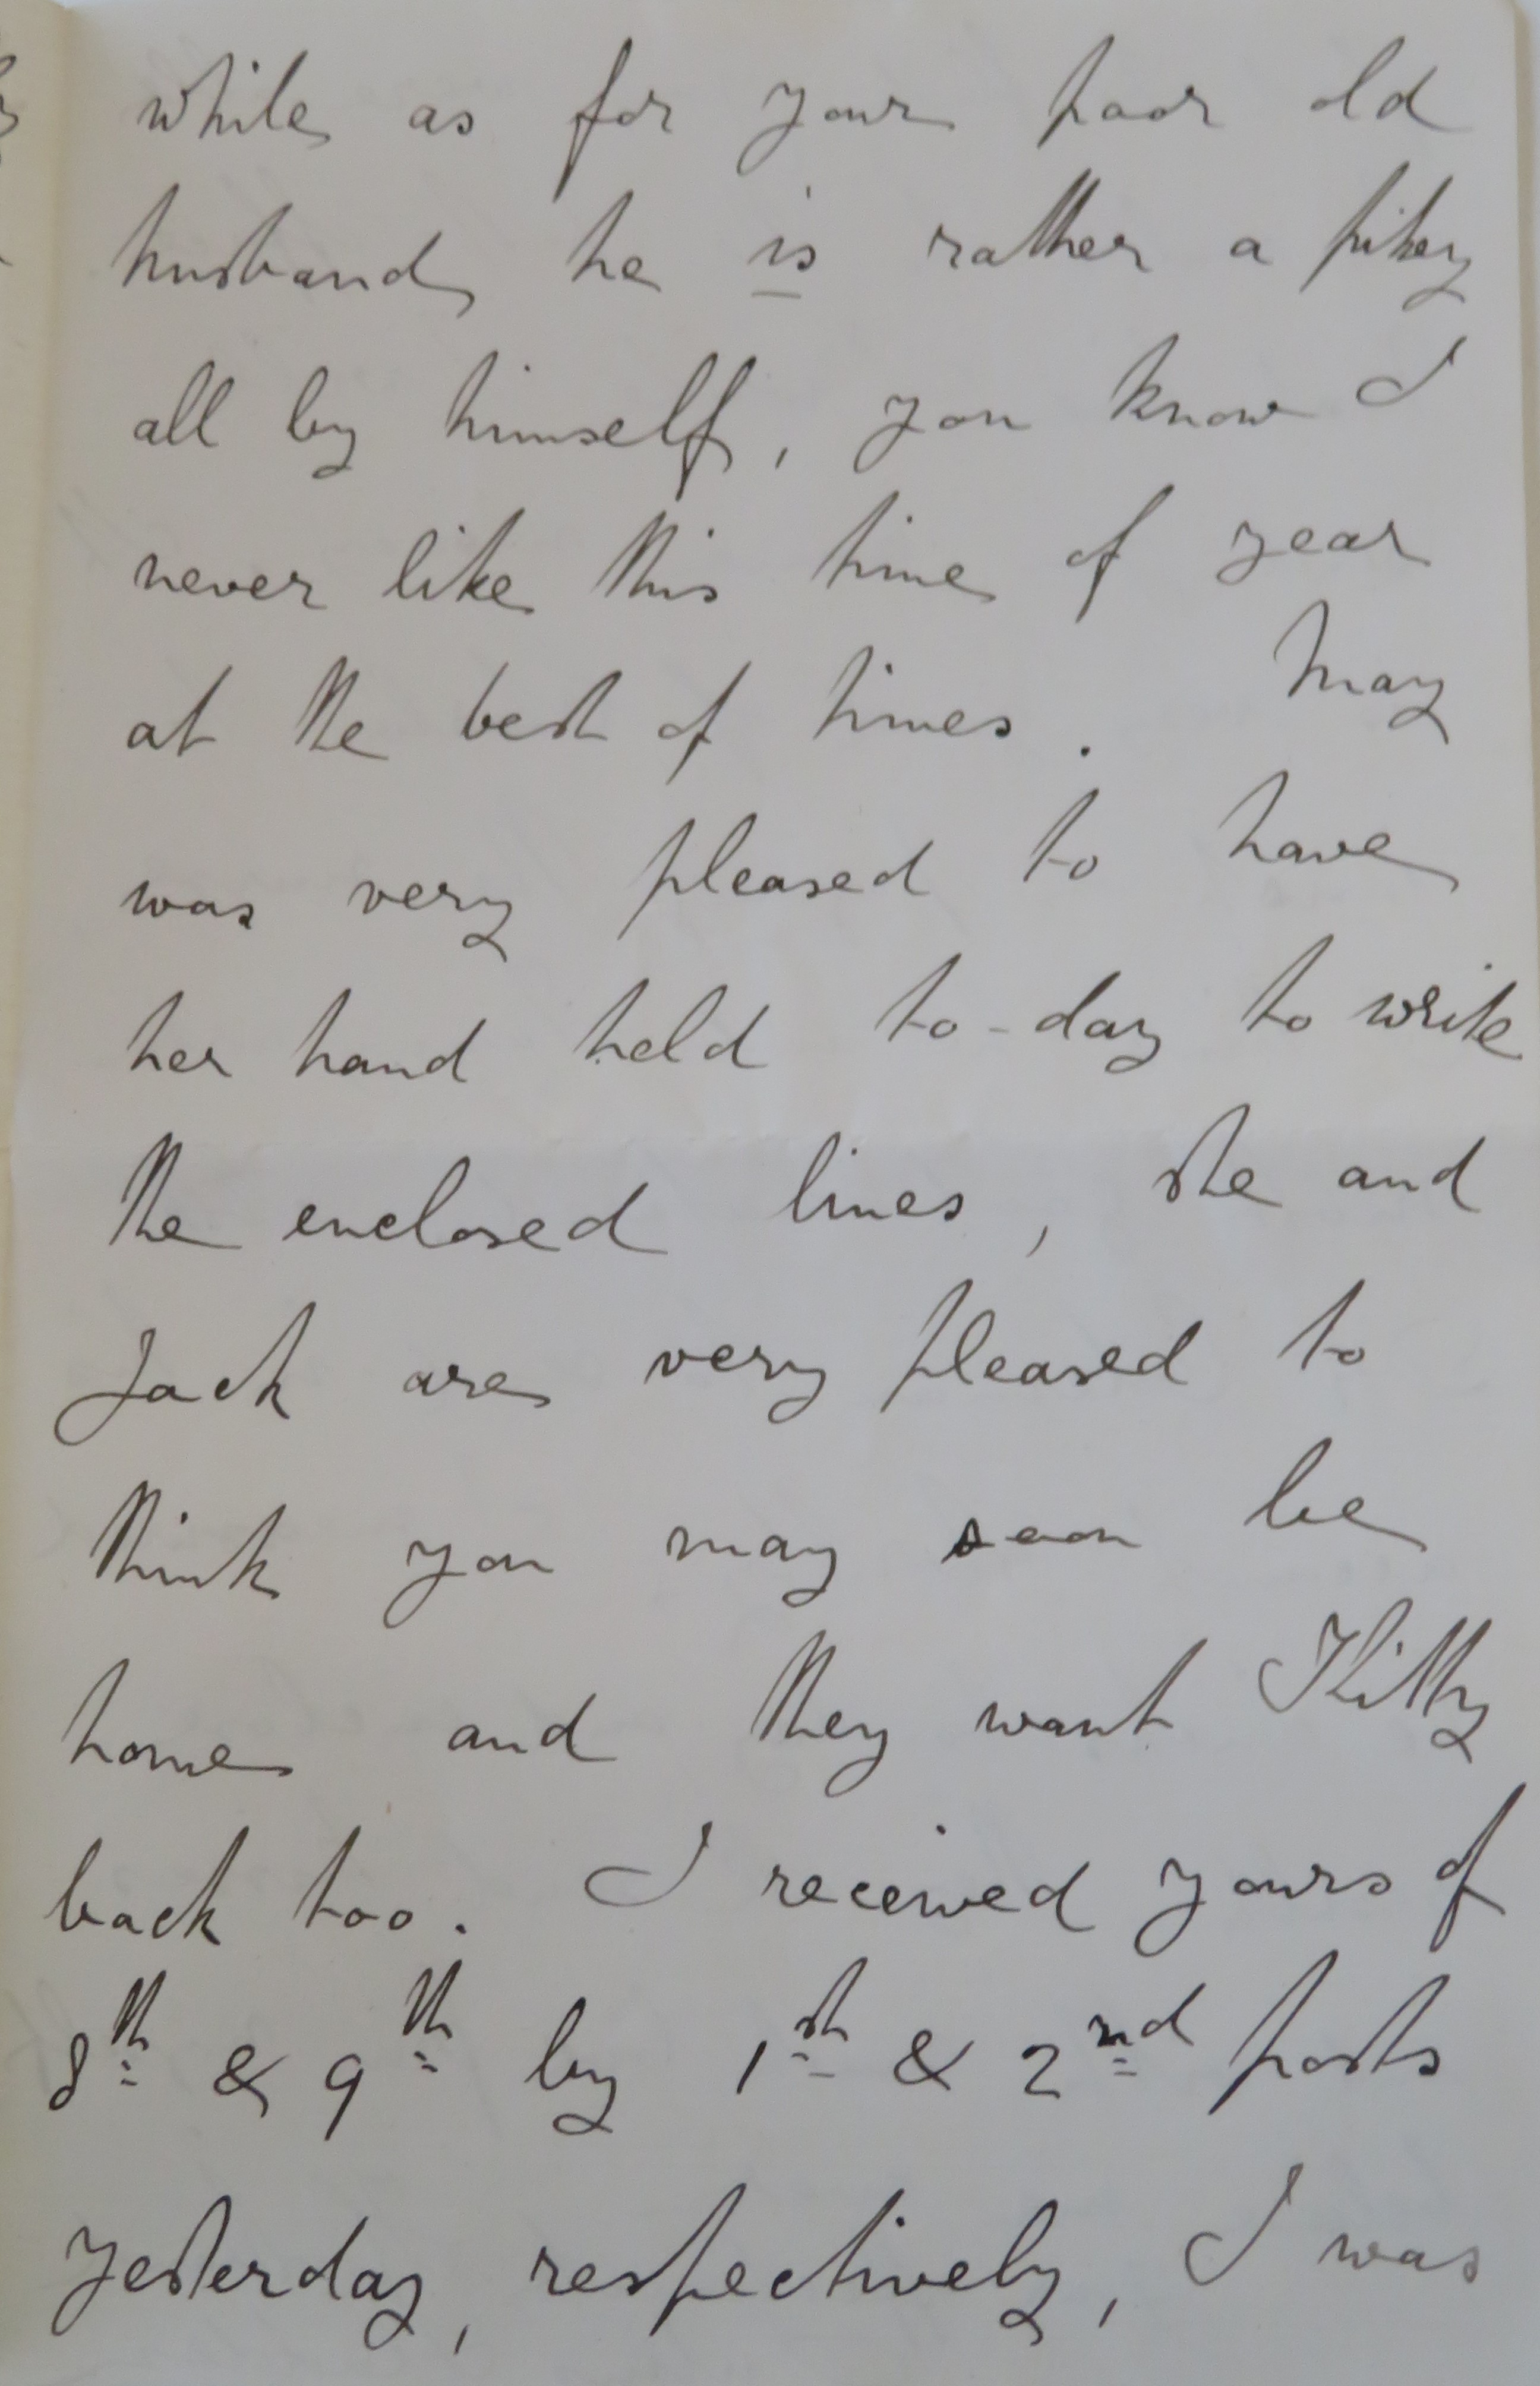 while as for your poor old
husband he is rather a pikey
all by himself, you know I
never like this time of year
at the best of times. May
was very pleased to have
her hand held to-day to write
the enclosed lines, she and
Jack are very pleased to
think you may soon be
home and they want Kitty
back too. I received yours of
8th & 9th by 1st & 2nd posts
yesterday, respectively, I was